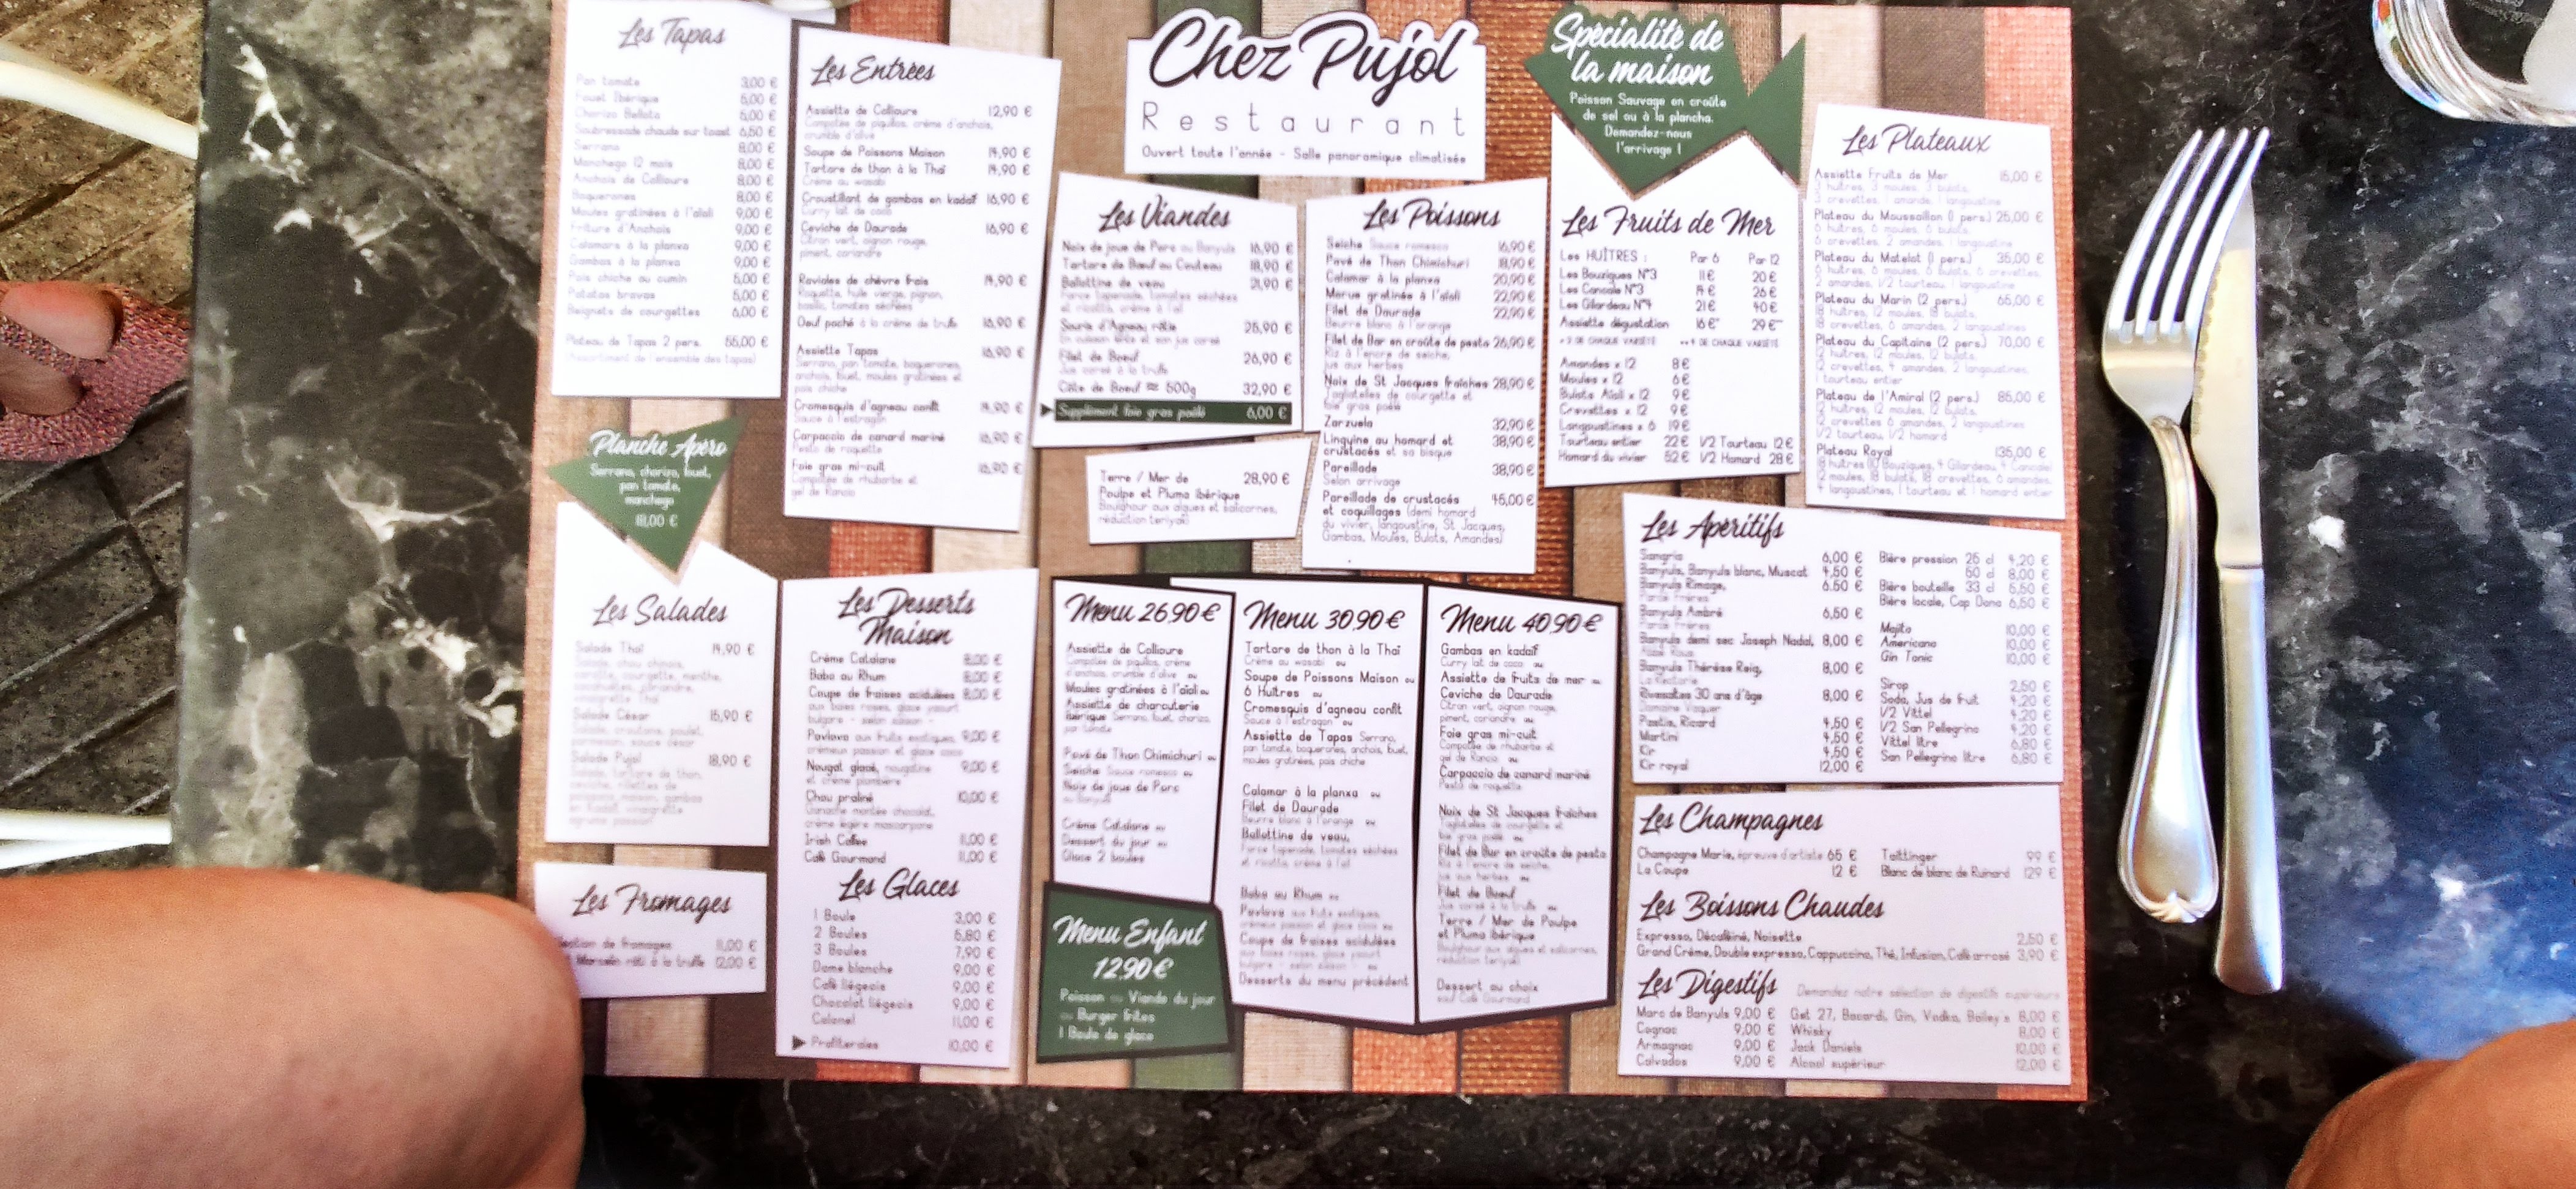 Les Tapas
Pan tomate 3,00 €
Fouet Ibérique 6,00 €
Chorizo Bellota 6,00 €
Soubressade chaude sur toast 6,50 €
Serrano 8,00 €
Manchego 12 mois 8,00 €
Anchois de Collioure 8,00 €
Boquerones 8,00 €
Moules gratinées à l'aïoli 9,00 €
Friture d'Anchois 9,00 €
Calamars à la planxa 9,00 €
Gambas à la planxa 9,00 €
Pois chiche au cumin 6,00 €
Patatas bravas 6,00 €
Beignets de courgettes 6,00 €
Plateau de Tapas 2 pers. 55,00 €
(Assortiment de l'ensemble des tapas)
Planche Apéro
Serrano, chorizo, fouet,
pan tomate,
manchego
18,00 €
Les Salades
Salade Thaï 14,90 €
Salade, chou chinois,
carotte, courgette, menthe,
Salade César 15,90 €
Salade, croutons, poulet,
parmesan, sauce césar
Salade Pujol 18,90 €
Salade, tartare de thon,
Les Fromages
de fromages 11,00 €
Marcelin rôti à la truffe 12,00 €
Les Entrées
Assiette de Collioure 12,90 €
Compotée de piquillos, crème d'anchois,
crumble d'olive
Soupe de Poissons Maison 14,90 €
Tartare de thon à la Thaï 14,90 €
Crème au wasabi
Croustillant de gambas en kadaïf 16,90 €
Curry lait de coco
Ceviche de Daurade 16,90 €
Citron vert, oignon rouge,
piment, coriandre
Ravioles de chèvre frais 14,90 €
Roquette, huile vierge, pignon,
basilic, tomates séchées
Oeuf poché à la crème de truffe 16,90 €
Assiette Tapas 16,90 €
Serrano, pan tomate, boquerones,
anchois, fouet, moules gratinées et
pois chiche
Cromesquis d'agneau confit 14,90 €
Sauce à l'estragon
Carpaccio de canard mariné 16,90 €
Pesto de roquette
Foie gras mi-cuit 16,90 €
Compotée de rhubarbe et
gel de Rancio
Les Desserts
Maison
Crème Catalane 8,00 €
Baba au Rhum 8,00 €
Coupe de fraises acidulées 8,00 €
aux baies roses, glace yaourt
bulgare - selon saison -
Pavlova aux fruits exotiques, 9,00 €
crémeux passion et glace coco
Nougat glacé, nougatine 9,00 €
et crème plombière
Chou praliné 10,00 €
Ganache montée chocolat,
crème légère mascarpone
Irish Coffee 11,00 €
Café Gourmand 11,00 €
Les Glaces
1 Boule 3,00 €
2 Boules 5,80 €
3 Boules 7,90 €
Dame blanche 9,00 €
Café liégeois 9,00 €
Chocolat liégeois 9,00 €
Colonel 11,00 €
Profiteroles 10,00 €
Chez Pujol
Restaurant
Ouvert toute l'année - Salle panoramique climatisée
Les Viandes
Noix de joue de Porc au Banyuls 16,90 €
Tartare de Bœuf au Couteau 18,90 €
Ballottine de veau 21,90 €
Farce tapenade, tomates séchées
et ricotta, crème à l'ail
Souris d'Agneau rôtie 25,90 €
Filet de Bœuf 26,90 €
Jus corsé à la truffe
Côte de Boeuf ≈ 500g 32,90 €
Supplément foie gras poêlé 6,00 €
Terre / Mer de 28,90 €
Poulpe et Pluma Ibérique
Boulghour aux algues et salicornes,
réduction teriyaki
Les Poissons
Seiche Sauce romesco 16,90 €
Pavé de Thon Chimichuri 18,90 €
Calamar à la planxa 20,90 €
Morue gratinée à l'aïoli 22,90 €
Filet de Daurade 22,90 €
Beurre blanc à l'orange
Filet de Bar en croûte de pesto 26,90 €
Riz à l'encre de seiche,
jus aux herbes
Noix de St Jacques fraîches 28,90 €
Tagliatelles de courgette et
foie gras poêlé
Zarzuela 32,90 €
Linguine au homard et 38,90 €
crustacés et sa bisque
Pareillade 38,90 €
Selon arrivage
Pareillade de crustacés 45,00 €
et coquillages (demi homard
du vivier, langoustine, St Jacques,
Gambas, Moules, Bulots, Amandes)
Spécialité de
la maison
Poisson Sauvage en croûte
de sel ou à la plancha.
Demandez-nous
l'arrivage !
Les Fruits de Mer
Les HUÎTRES : Par 6 Par 12
Les Bouzigues N°3 11€ 20€
Les Cancale N°3 14€ 26€
Les Gilardeau N°4 21€ 40€
Assiette dégustation 16€* 29€**
* 2 DE CHAQUE VARIÉTÉ ** 4 DE CHAQUE VARIÉTÉ
Amandes x 12 8€
Moules x 12 6€
Bulots Aïoli x 12 9€
Crevettes x 12 9€
Langoustines x 6 19€
Tourteau entier 22€ 1/2 Tourteau 12€
Homard du vivier 52€ 1/2 Homard 28€
Les Plateaux
Assiette Fruits de Mer 15,00 €
3 huîtres, 3 moules, 3 bulots,
3 crevettes, 1 amande, 1 langoustine
Plateau du Moussaillon (1 pers.) 25,00 €
6 huîtres, 6 moules, 6 bulots,
6 crevettes, 2 amandes, 1 langoustine
Plateau du Matelot (1 pers.) 35,00 €
6 huîtres, 6 moules, 6 bulots, 6 crevettes,
2 amandes, 1/2 tourteau, 1 langoustine
Plateau du Marin (2 pers.) 65,00 €
18 huîtres, 12 moules, 18 bulots,
18 crevettes, 6 amandes, 2 langoustines
Plateau du Capitaine (2 pers.) 70,00 €
12 huîtres, 12 moules, 12 bulots,
12 crevettes, 4 amandes, 2 langoustines,
1 tourteau entier
Plateau de l'Amiral (2 pers.) 85,00 €
12 huîtres, 12 moules, 12 bulots,
12 crevettes 6 amandes, 2 langoustines
1/2 tourteau, 1/2 homard
Plateau Royal 135,00 €
18 huîtres (10 Bouzigues, 4 Gilardeau, 4 Cancale)
12 moules, 18 bulots, 18 crevettes, 6 amandes,
4 langoustines, 1 tourteau et 1 homard entier
Menu 26,90 €
Assiette de Collioure
Compotée de piquillos, crème
d'anchois, crumble d'olive ou
Moules gratinées à l'aïoli ou
Assiette de charcuterie
ibérique Serrano, fouet, chorizo,
pan tomate
Pavé de Thon Chimichuri ou
Seiche Sauce romesco ou
Noix de joue de Porc
au Banyuls
Crème Catalane ou
Dessert du jour ou
Glace 2 boules
Menu Enfant
12,90 €
Poisson ou Viande du jour
ou Burger frites
1 Boule de glace
Menu 30,90 €
Tartare de thon à la Thaï
Crème au wasabi ou
Soupe de Poissons Maison ou
6 Huîtres ou
Cromesquis d'agneau confit
Sauce à l'estragon ou
Assiette de Tapas Serrano,
pan tomate, boquerones, anchois, fouet,
moules gratinées, pois chiche
Calamar à la planxa ou
Filet de Daurade
Beurre blanc à l'orange ou
Ballottine de veau,
Farce tapenade, tomates séchées
et ricotta, crème à l'ail
Baba au Rhum ou
Pavlova aux fruits exotiques,
crémeux passion et glace coco ou
Coupe de fraises acidulées
aux baies roses, glace yaourt
bulgare - selon saison - ou
Desserts du menu précédent
Menu 40,90 €
Gambas en kadaïf
Curry lait de coco ou
Assiette de fruits de mer ou
Ceviche de Daurade
Citron vert, oignon rouge,
piment, coriandre ou
Foie gras mi-cuit
Compotée de rhubarbe et
gel de Rancio ou
Carpaccio de canard mariné
Pesto de roquette
Noix de St Jacques fraîches
Tagliatelles de courgette et
foie gras poêlé ou
Filet de Bar en croûte de pesto
Riz à l'encre de seiche,
jus aux herbes ou
Filet de Boeuf
Jus corsé à la truffe ou
Terre / Mer de Poulpe
et Pluma Ibérique
Boulghour aux algues et salicornes,
réduction teriyaki
Dessert au choix
sauf Café Gourmand
Les Apéritifs
Sangria 6,00 €
Banyuls, Banyuls blanc, Muscat 4,50 €
Banyuls Rimage, 6.50 €
Parcé Frères
Banyuls Ambré 6,50 €
Parcé Frères
Banyuls demi sec Joseph Nadal, 8,00 €
Abbé Rous
Banyuls Thérèse Reig, 8,00 €
La Rectorie
Rivesaltes 30 ans d'âge 8,00 €
Domaine Vaquer
Pastis, Ricard 4,50 €
Martini 4,50 €
Kir 4,50 €
Kir royal 12,00 €
Bière pression 25 cl 4,20 €
50 cl 8,00 €
Bière bouteille 33 cl 5,50 €
Bière locale, Cap Dona 6,50 €
Mojito 10,00 €
Americano 10,00 €
Gin Tonic 10,00 €
Sirop 2,50 €
Soda, Jus de fruit 4,20 €
1/2 Vittel 4,20 €
1/2 San Pellegrino 4,20 €
Vittel litre 6,80 €
San Pellegrino litre 6,80 €
Les Champagnes
Champagne Marie, épreuve d'artiste 65 € Taittinger 99 €
La Coupe 12 € Blanc de blanc de Ruinard 129 €
Les Boissons Chaudes
Expresso, Décaféiné, Noisette 2,50 €
Grand Crème, Double expresso, Cappuccino, Thé, Infusion, Café arrosé 3,90 €
Les Digestifs Demandez notre sélection de digestifs supérieurs
Marc de Banyuls 9,00 € Get 27, Bacardi, Gin, Vodka, Bailey's 8,00 €
Cognac 9,00 € Whisky 8,00 €
Armagnac 9,00 € Jack Daniels 10,00 €
Calvados 9,00 € Alcool supérieur 12,00 €